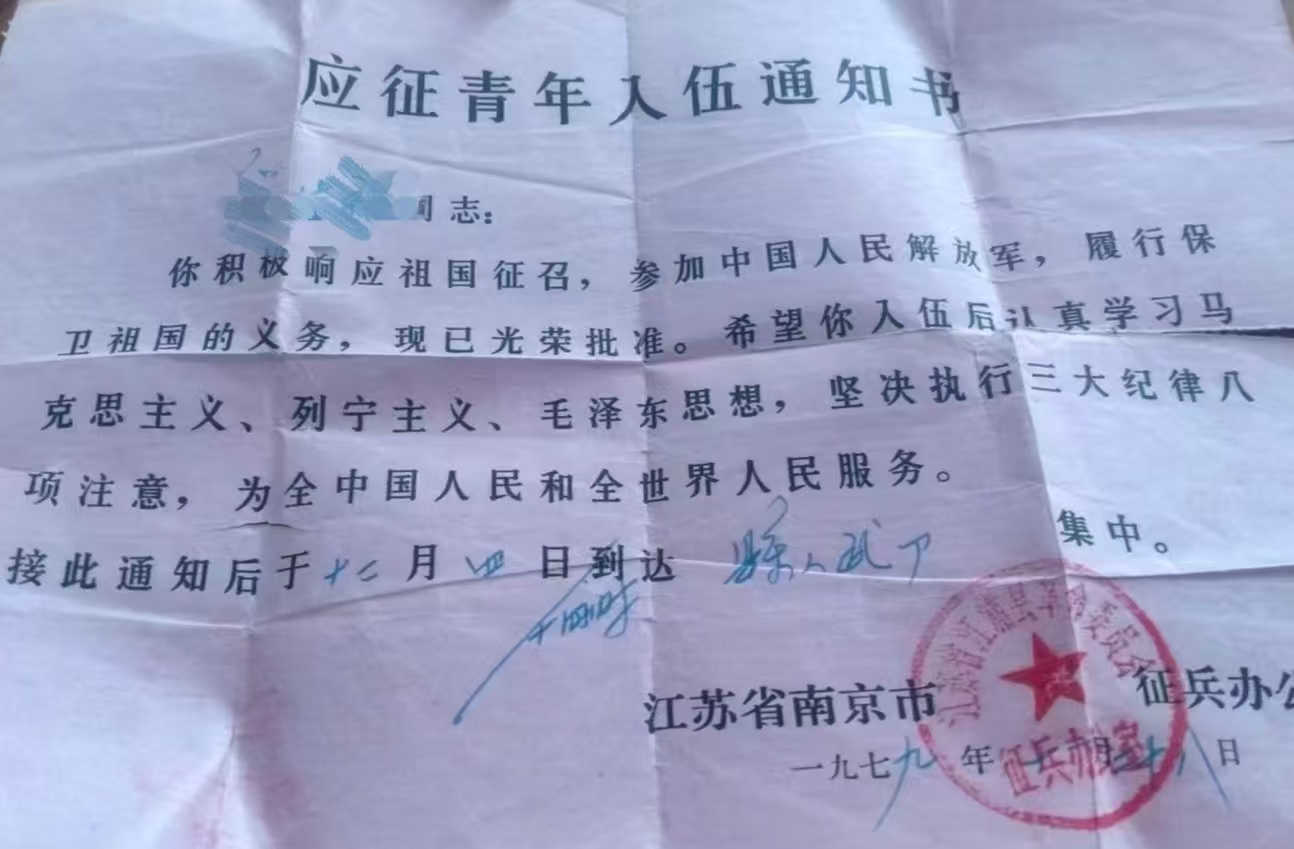 应征青年入伍通知书
同志：
你积极响应祖国征召，参加中国人民解放军，履行保
卫祖国的义务，现已光荣批准。希望你入伍后认真学习马
克思主义、列宁主义、毛泽东思想，坚决执行三大纪律八
项注意，为全中国人民和全世界人民服务。
接此通知后于十二月四日到达 县人武部 集中。
下午四时
江苏省南京市 征兵办公
江苏省江浦县革命委员会
征兵办公室
一九七九年 月二十八日